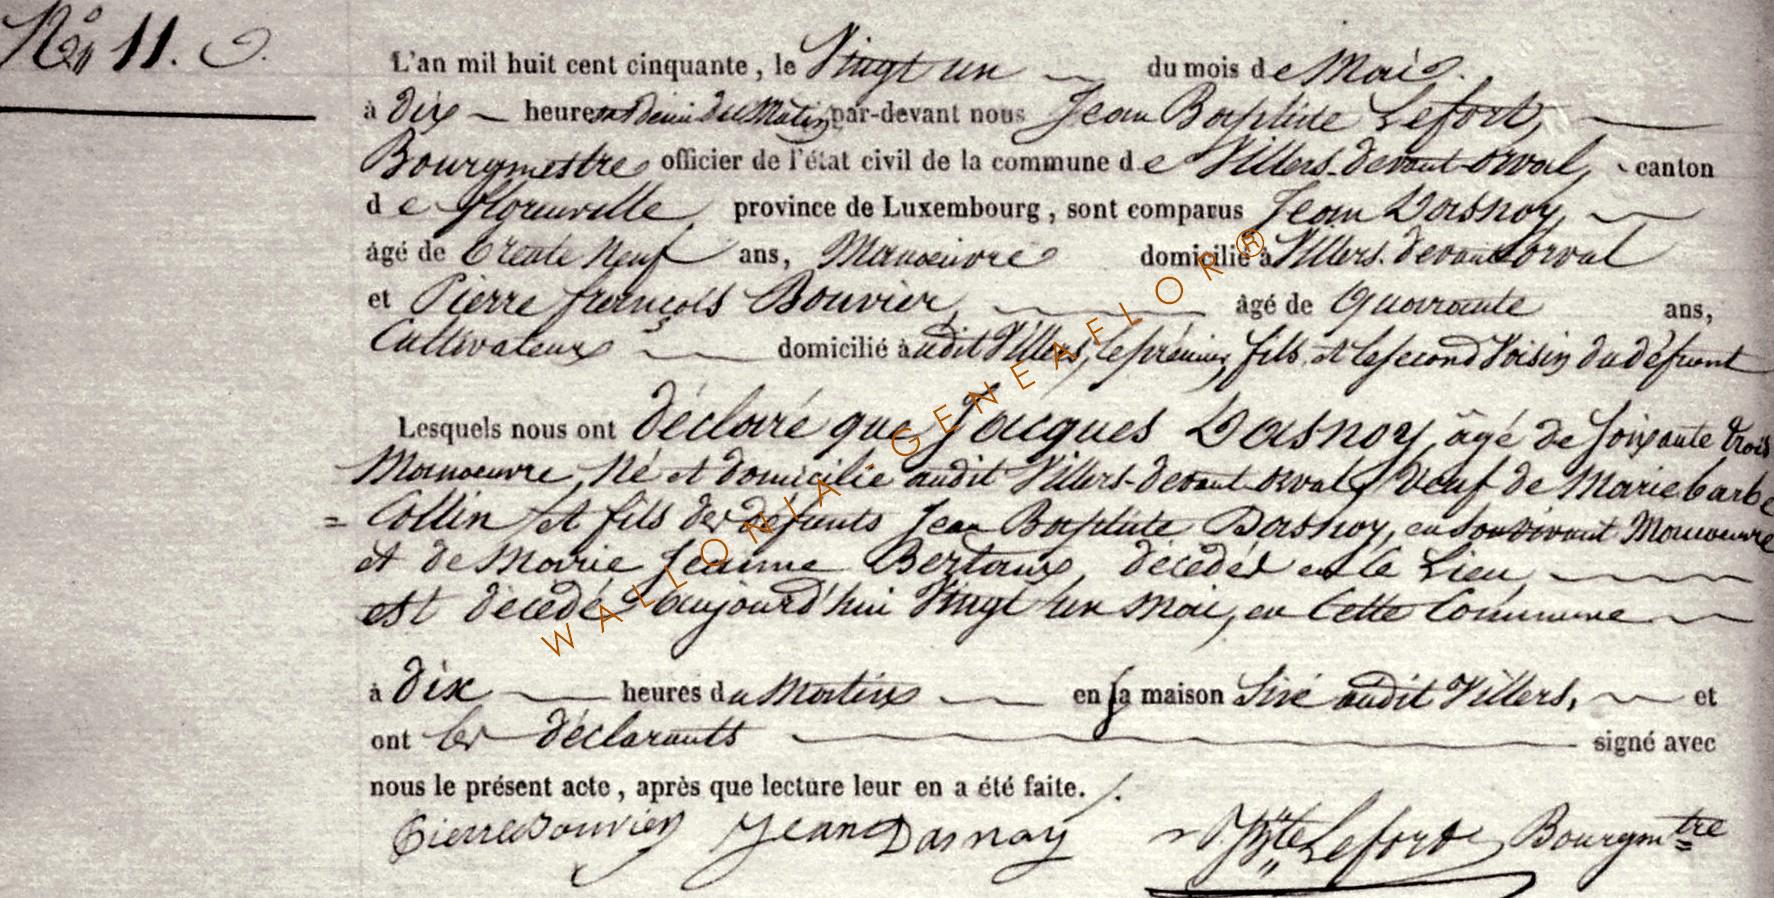 No 11.
L'an mil huit cent cinquante, le Vingt un du mois de Mai.
à dix heures et demi du Matin, par-devant nous Jean Baptiste Lefort,
Bourgmestre officier de l'état civil de la commune de Villers-devant-orval, canton
de florenville province de Luxembourg, sont comparus Jean Dasnoy,
âgé de trente neuf ans, Manoeuvre domicilié à Villers-devant orval
et Pierre françois Bouvier, âgé de Quarante ans,
Cultivateurs domicilié audit Villers, le premier fils et le second Voisin du défunt
Lesquels nous ont déclaré que Jacques Dasnoy, âgé de soixante trois
Manoeuvre, Né et domicilié audit Villers-devant orval, Veuf de Marie barbe
= Collin et fils des défunts Jean Baptiste Dasnoy, en son vivant Manoeuvre
et de Marie Jeanne Bertaux, décédés en ce Lieu,
est décédé aujourd'hui Vingt un Mai, en Cette Commune
à dix heures du Matin en sa maison Sise audit Villers, et
ont les déclarants signé avec
nous le présent acte, après que lecture leur en a été faite. /.
Pierre Bouvier Jean Dasnoy J Bte Lefort Bourgmtre
WALLONIA - GENEAFLOR®